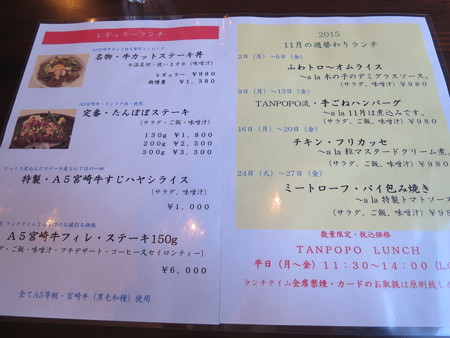 レギュラーランチ
名物・牛カットステーキ丼
※温名卵・祝います※（味噌汁）
レギュラー ￥980
肉増量 ￥1,380
定番・たんぽぽステーキ
（サラダ、ご飯、味噌汁）
130g ￥1,800
200g ￥2,500
300g ￥3,300
特製・A5宮崎牛すじハヤシライス
（サラダ、味噌汁）
￥1,000
ランチタイムなら
A5宮崎牛フィレ・ステーキ150g
・ご飯・味噌汁・プチデザート・コーヒースセイロンティー）
￥6,000
全てA5等級・宮崎牛（黒毛和種）使用
2015
11月の週替わりランチ
2日（月）～6日（金）
ふわトロ～オムライス
～a la 木の子のデミグラスソース。
（サラダ、味噌汁）￥980
9日（月）～13日（金）
TANPOPO流・手ごねハンバーグ
～a la 11月は煮込みです。
（サラダ、ご飯、味噌汁）￥980
16日（月）～20日（金）
チキン・フリカッセ
～a la 粒マスタードクリーム煮。
（サラダ、ご飯、味噌汁）￥980
24日（火）～27日（金）
ミートローフ・パイ包み焼き
～a la 特製トマトソース
（サラダ、ご飯、味噌汁）￥98
数量限定・税込価格
TANPOPO LUNCH
平日（月～金）11：30～14：00（L.O
ランチタイム全席禁煙・カードのお取扱は原則致し